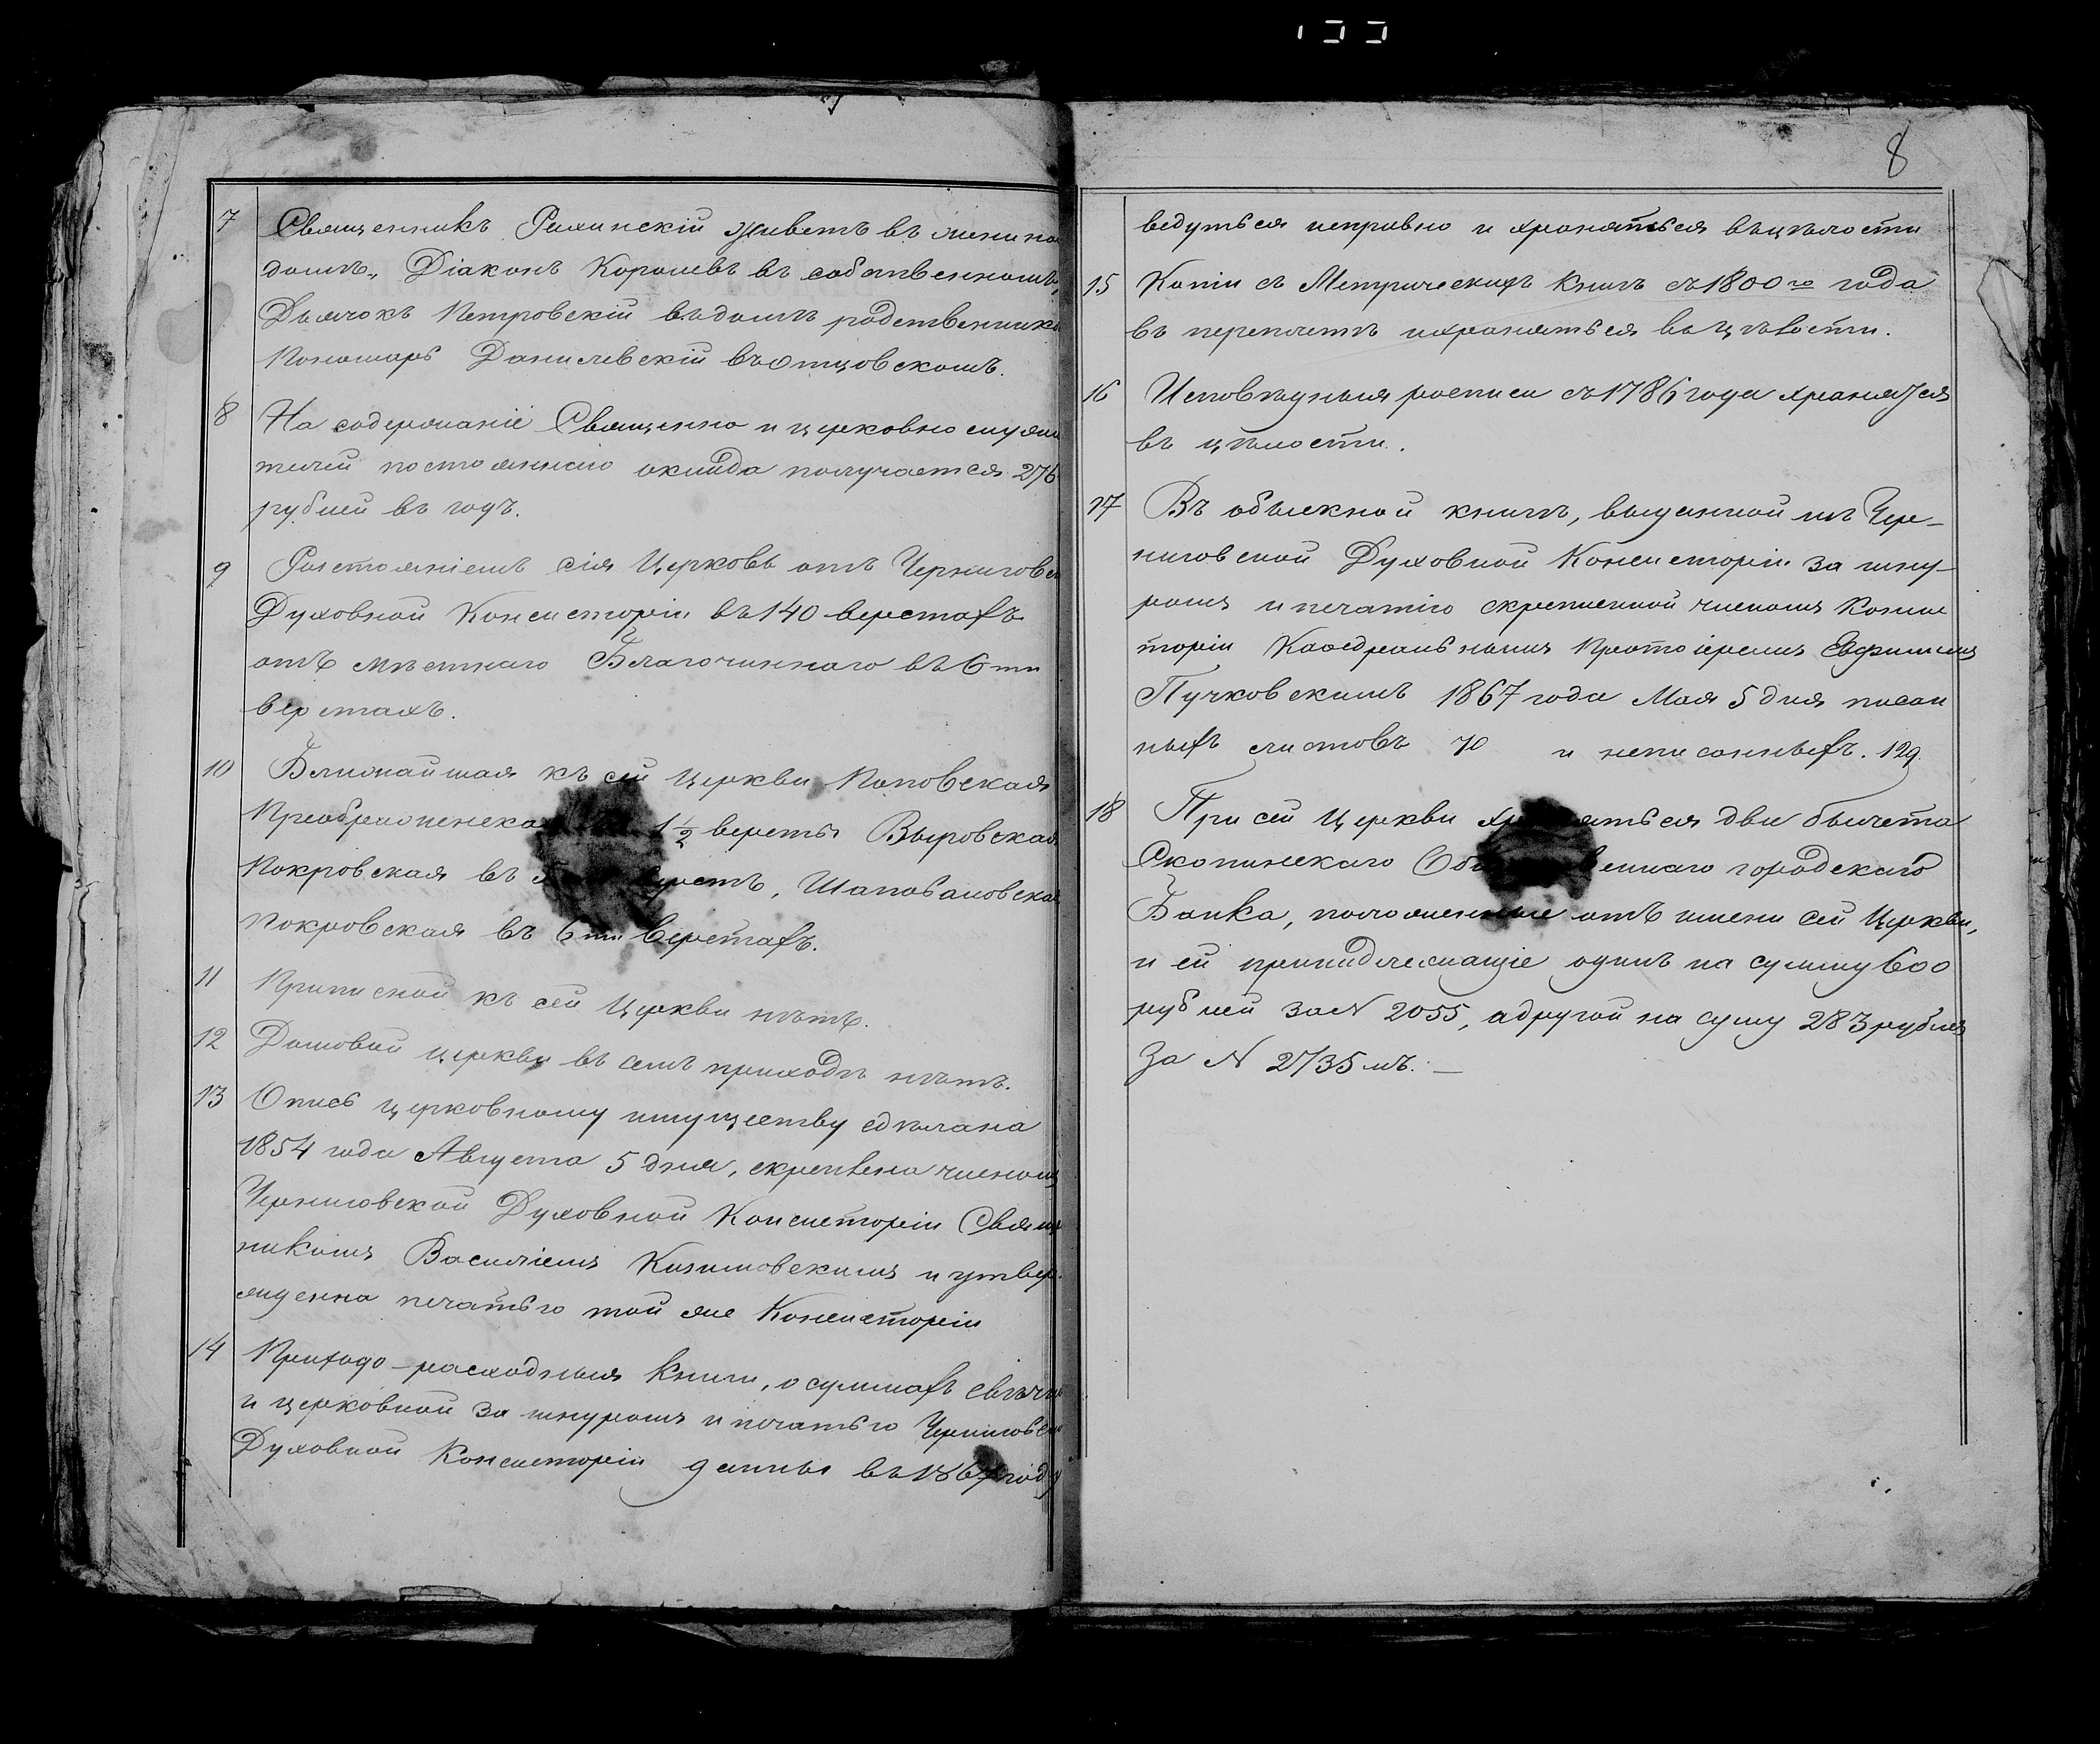 8
7 Священникъ живетъ въ
домѣ, Діаконъ Королевъ въ собственномъ,
Дьячокъ Петровскій въ домѣ родственника
Пономарь Данилевскій въ отцовскомъ.
8 На содержаніе Священно и церковно служи
телей постояннаго оклада получается 276
рублей въ годъ.
9 Разстояніемъ сія Церковь отъ Чернигов
Духовной Консисторіи въ 140 верстахъ
отъ мѣстнаго Благочиннаго въ 6 ти
верстахъ.
10 Ближайшая къ сей Церкви Поповская
Преображенская 1 1/2 версты Выровская
Покровская въ верстъ, Шаповаловская
Покровская въ 6 ти верстахъ.
11 Приписной къ сей Церкви нѣтъ.
12 Домовой церкви въ семъ приходѣ нѣтъ.
13 Опись церковному имуществу сдѣлана
1854 года Августа 5 дня, скрѣплена членомъ
Черниговской Духовной Консисторіи Священ
никомъ Василіемъ и утвер
жденна печатью той же Консисторіи
14 Приходо-расходныя книги, о суммахъ свѣчн
и церковной за шнуромъ и печатью Черниговск
Духовной Консисторіи данны въ 1867 году
ведуться исправно и храняться въ цѣлости
15 Копіи съ Метрическихъ книгъ съ 1800 го года
въ переплетѣ и храняться въ цѣлости.
16 Исповѣдныя росписи съ 1786 года храняться
въ цѣлости.
17 Въ обыскной книгѣ, выданной изъ Чер-
ниговской Духовной Консисторіи за шну-
ромъ и печатію скрепленной членомъ Конси
торіи Каѳедральнымъ Протоіереемъ Евфиміемъ
Пучковскимъ 1867 года Мая 5 дня писан
ныхъ листовъ 70 и неписанныхъ. 129.
18 При сей Церкви храняться два билета
Скопинскаго Общественнаго городскаго
Банка, положенные отъ имени сей Церкви,
и ей принадлежащіе одинъ на сумму 600
рублей за N 2055, а другой на суму 283 рубля
за N 2735 мъ. —